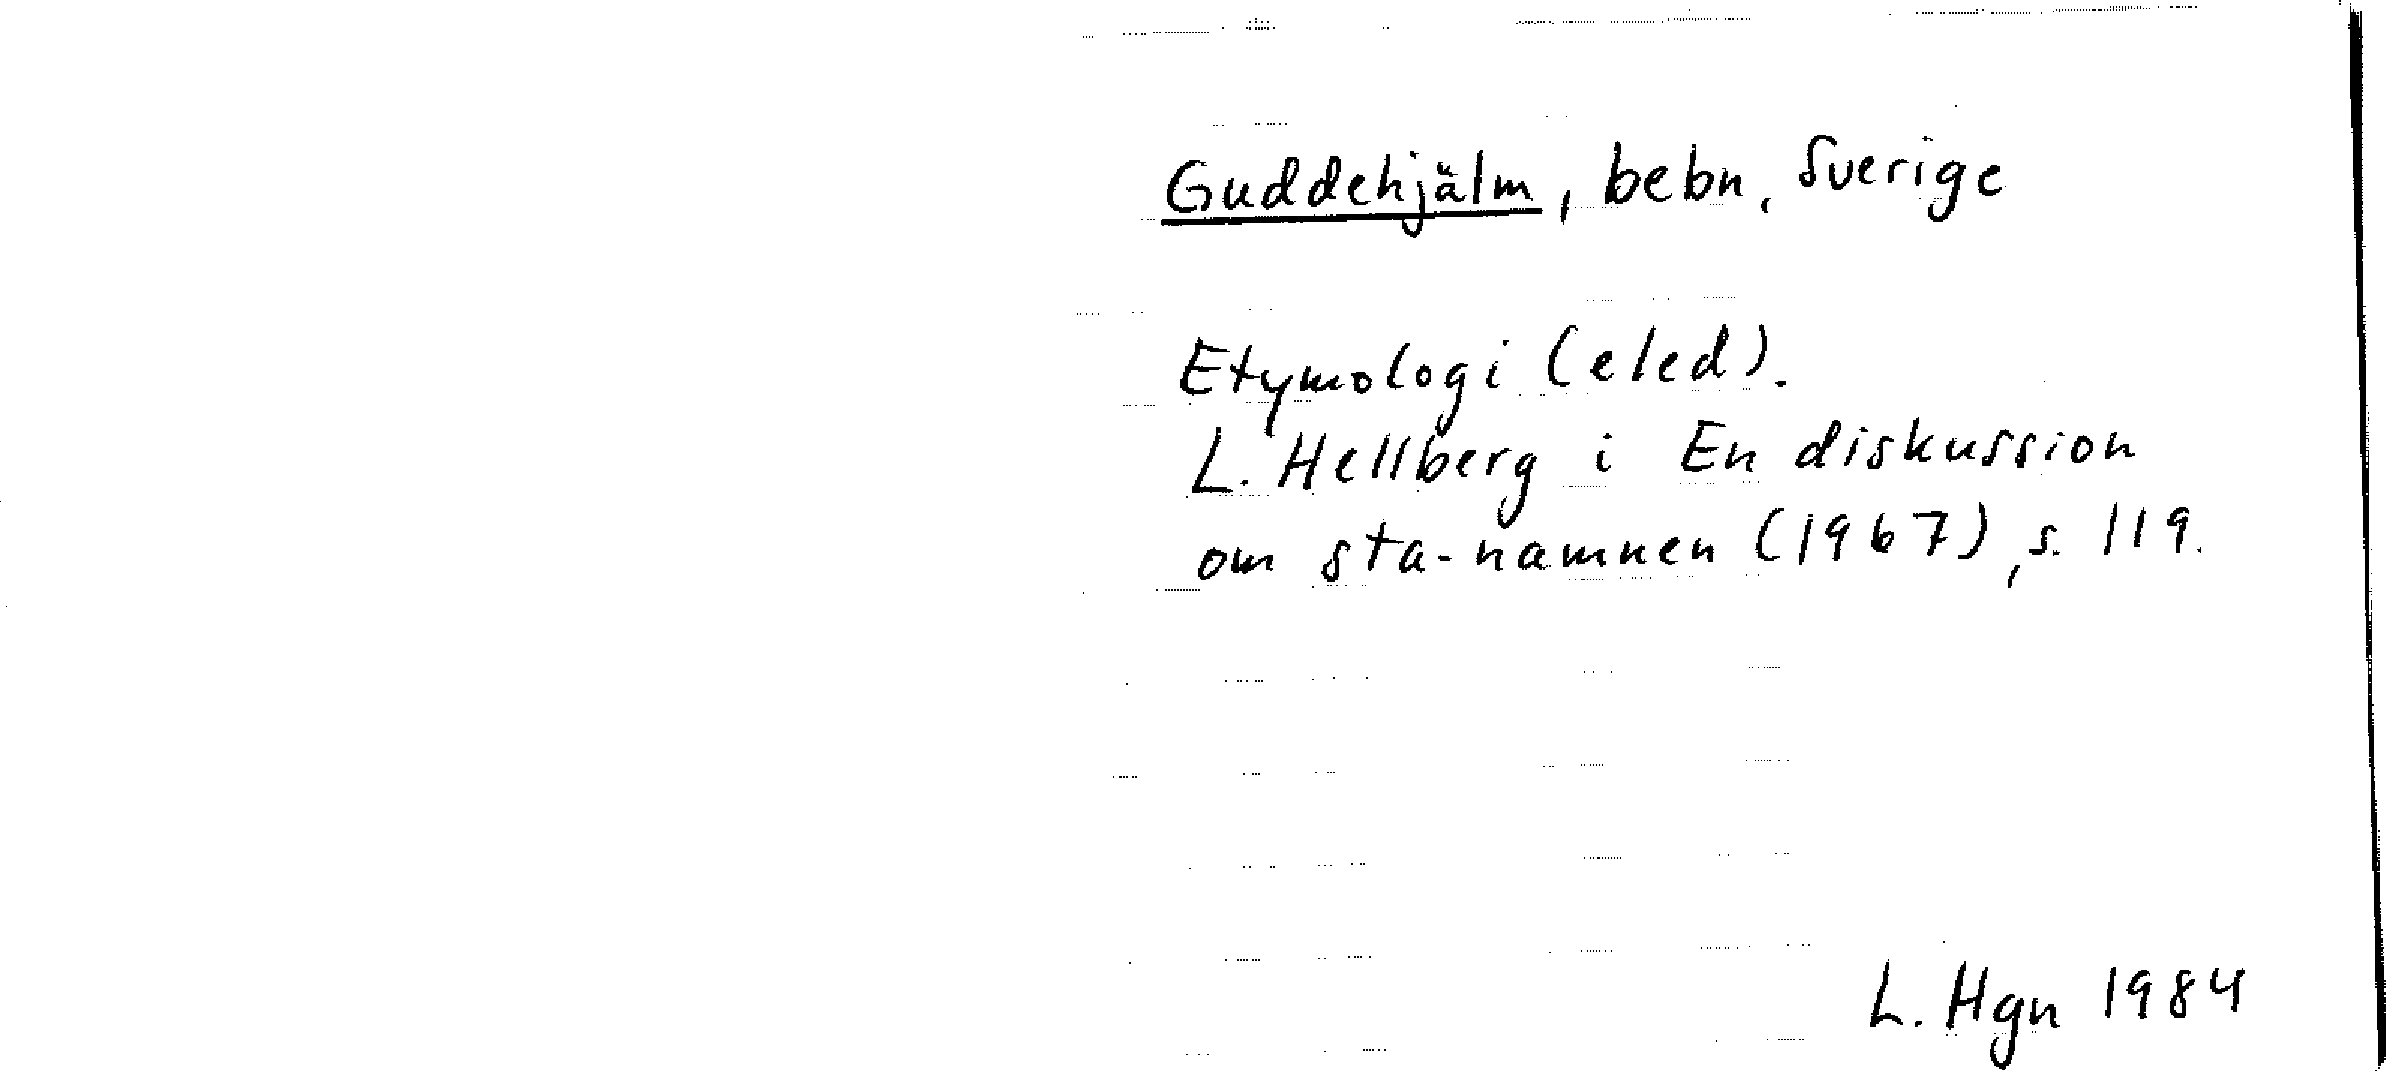 Guddehjälm, bebn, Sverige
Etymologi (eled).
L. Hellberg i En diskussion
om sta-namnen (1967), s. 119.
L. Hgn 1984